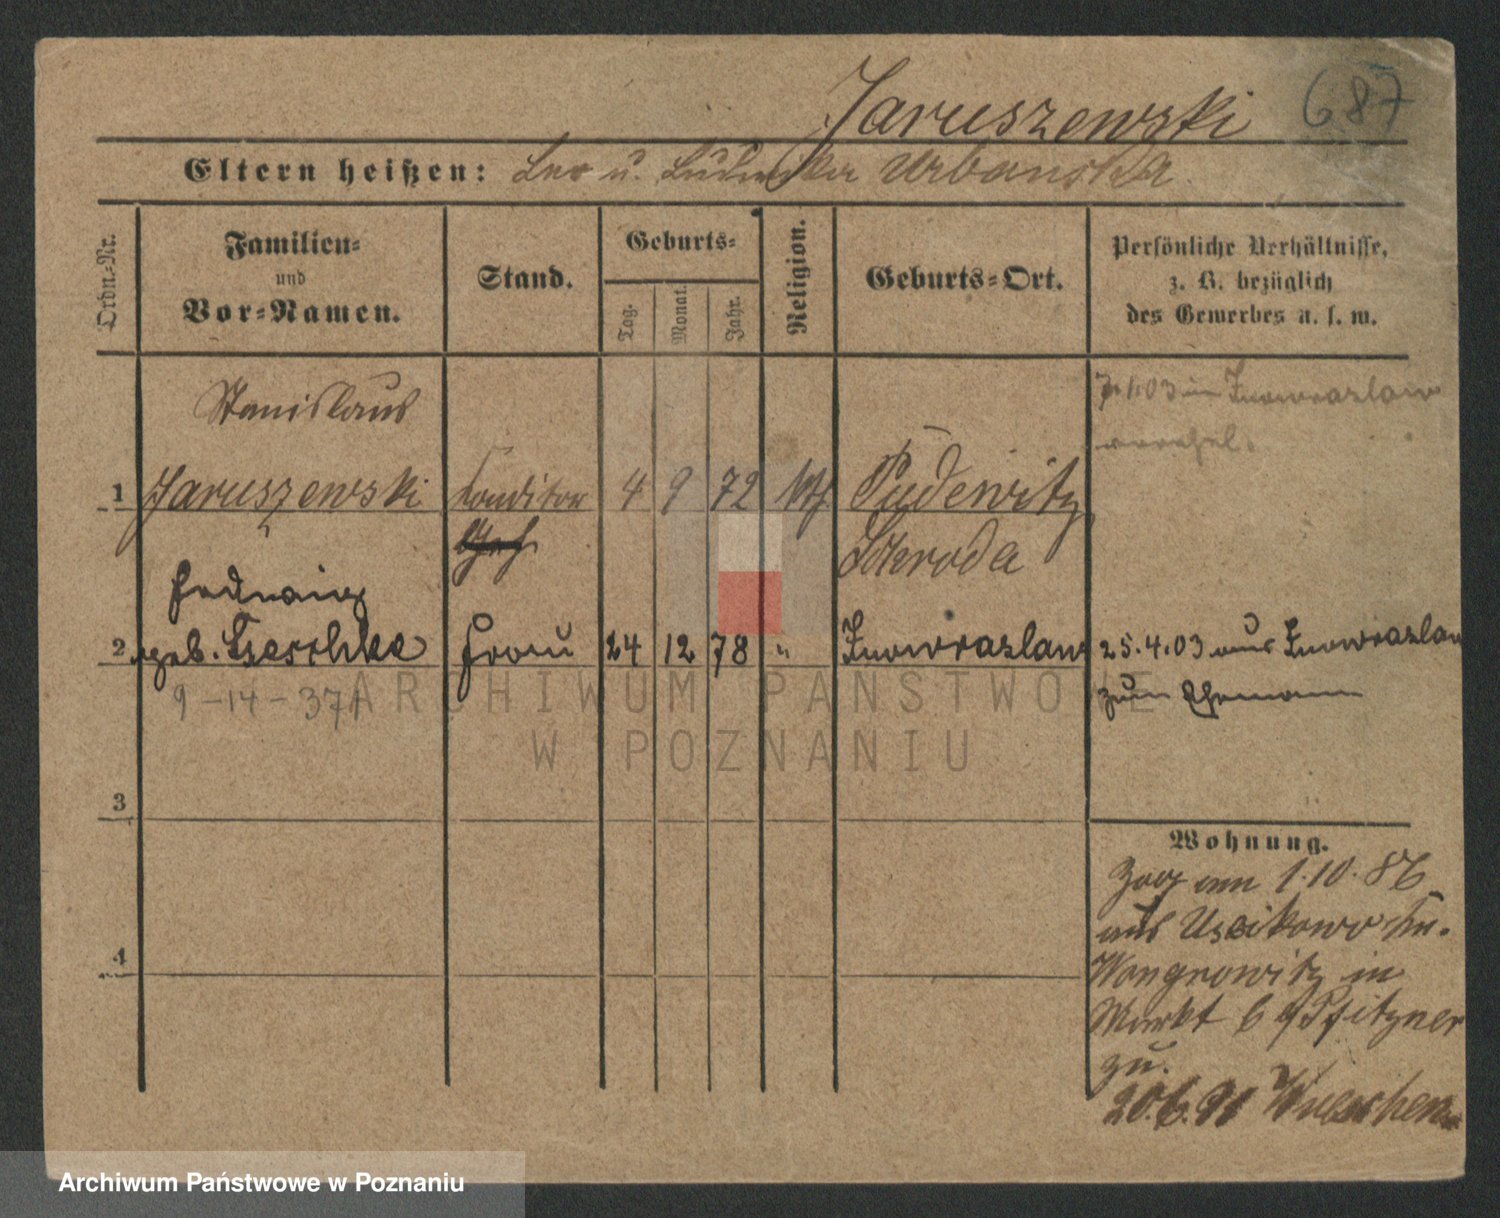 Jaruszewski 687
Eltern heißen: Leo u. Ludwika Urbanska
Ordn.-Nr.
Familien-
und
Vor-Namen.
Stand.
Geburts-
Tag.
Monat.
Jahr.
Religion.
Geburts-Ort.
Persönliche Verhältnisse,
z. B. bezüglich
des Gewerbes u. s. w.
Stanislaus
1 Jaruszewski Conditor 4 9 72 kth Pudewitz
Schroda
1.03 in Inowrazlaw
Hedwig
2 geb. Frau 24 12 78 " Inowrazlaw 25.4.03 aus Inowrazlaw
zum Ehemann
9-14-371
3
4
Wohnung.
Zog am 1.10.86
aus Uscikowo
Wongrowitz in
Markt 6 Pfitzner
zu.
20.6.91 Wreschen
ARCHIWUM PAŃSTWOWE
W POZNANIU
Archiwum Państwowe w Poznaniu